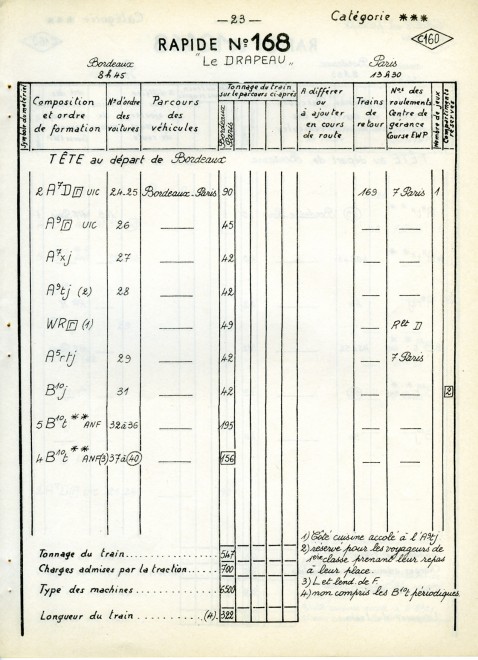 — 23 —
Catégorie ***
RAPIDE No 168
"LE DRAPEAU"
C160
Bordeaux
8h45
Paris
13h30
Symbole du matériel
Composition et ordre de formation
Nos d'ordre des voitures
Parcours des véhicules
Tonnage du train sur le parcours ci-après
Bordeaux Paris
A différer ou à ajouter en cours de route
Trains de retour
Nos des roulements Centre de gérance Course EWP
Nombre de jeux
Compartiments réservés
TÊTE au départ de Bordeaux
2 A7D r UIC 24-25 Bordeaux-Paris 90 169 7 Paris 1
A9 r UIC 26 — 45 — —
A7xj 27 — 42 — —
A9tj (2) 28 — 42 — —
WR r (1) — 49 — Rlt D
A5rtj 29 — 42 — 7 Paris
B10j 31 — 42 — — 2
5 B10t ** ANF 32 à 36 — 195 — —
4 B10t ** ANF (3) 37 à 40 — 156 — —
Tonnage du train ........... 547
Charges admises par la traction ..... 700
Type des machines .......... 6500
Longueur du train .......... (4). 322
1) Côté cuisine accolé à l'A9tj
2) réservé pour les voyageurs de
1ère classe prenant leur repas
à leur place.
3) L et lend. de F.
4) non compris les B10t périodiques.